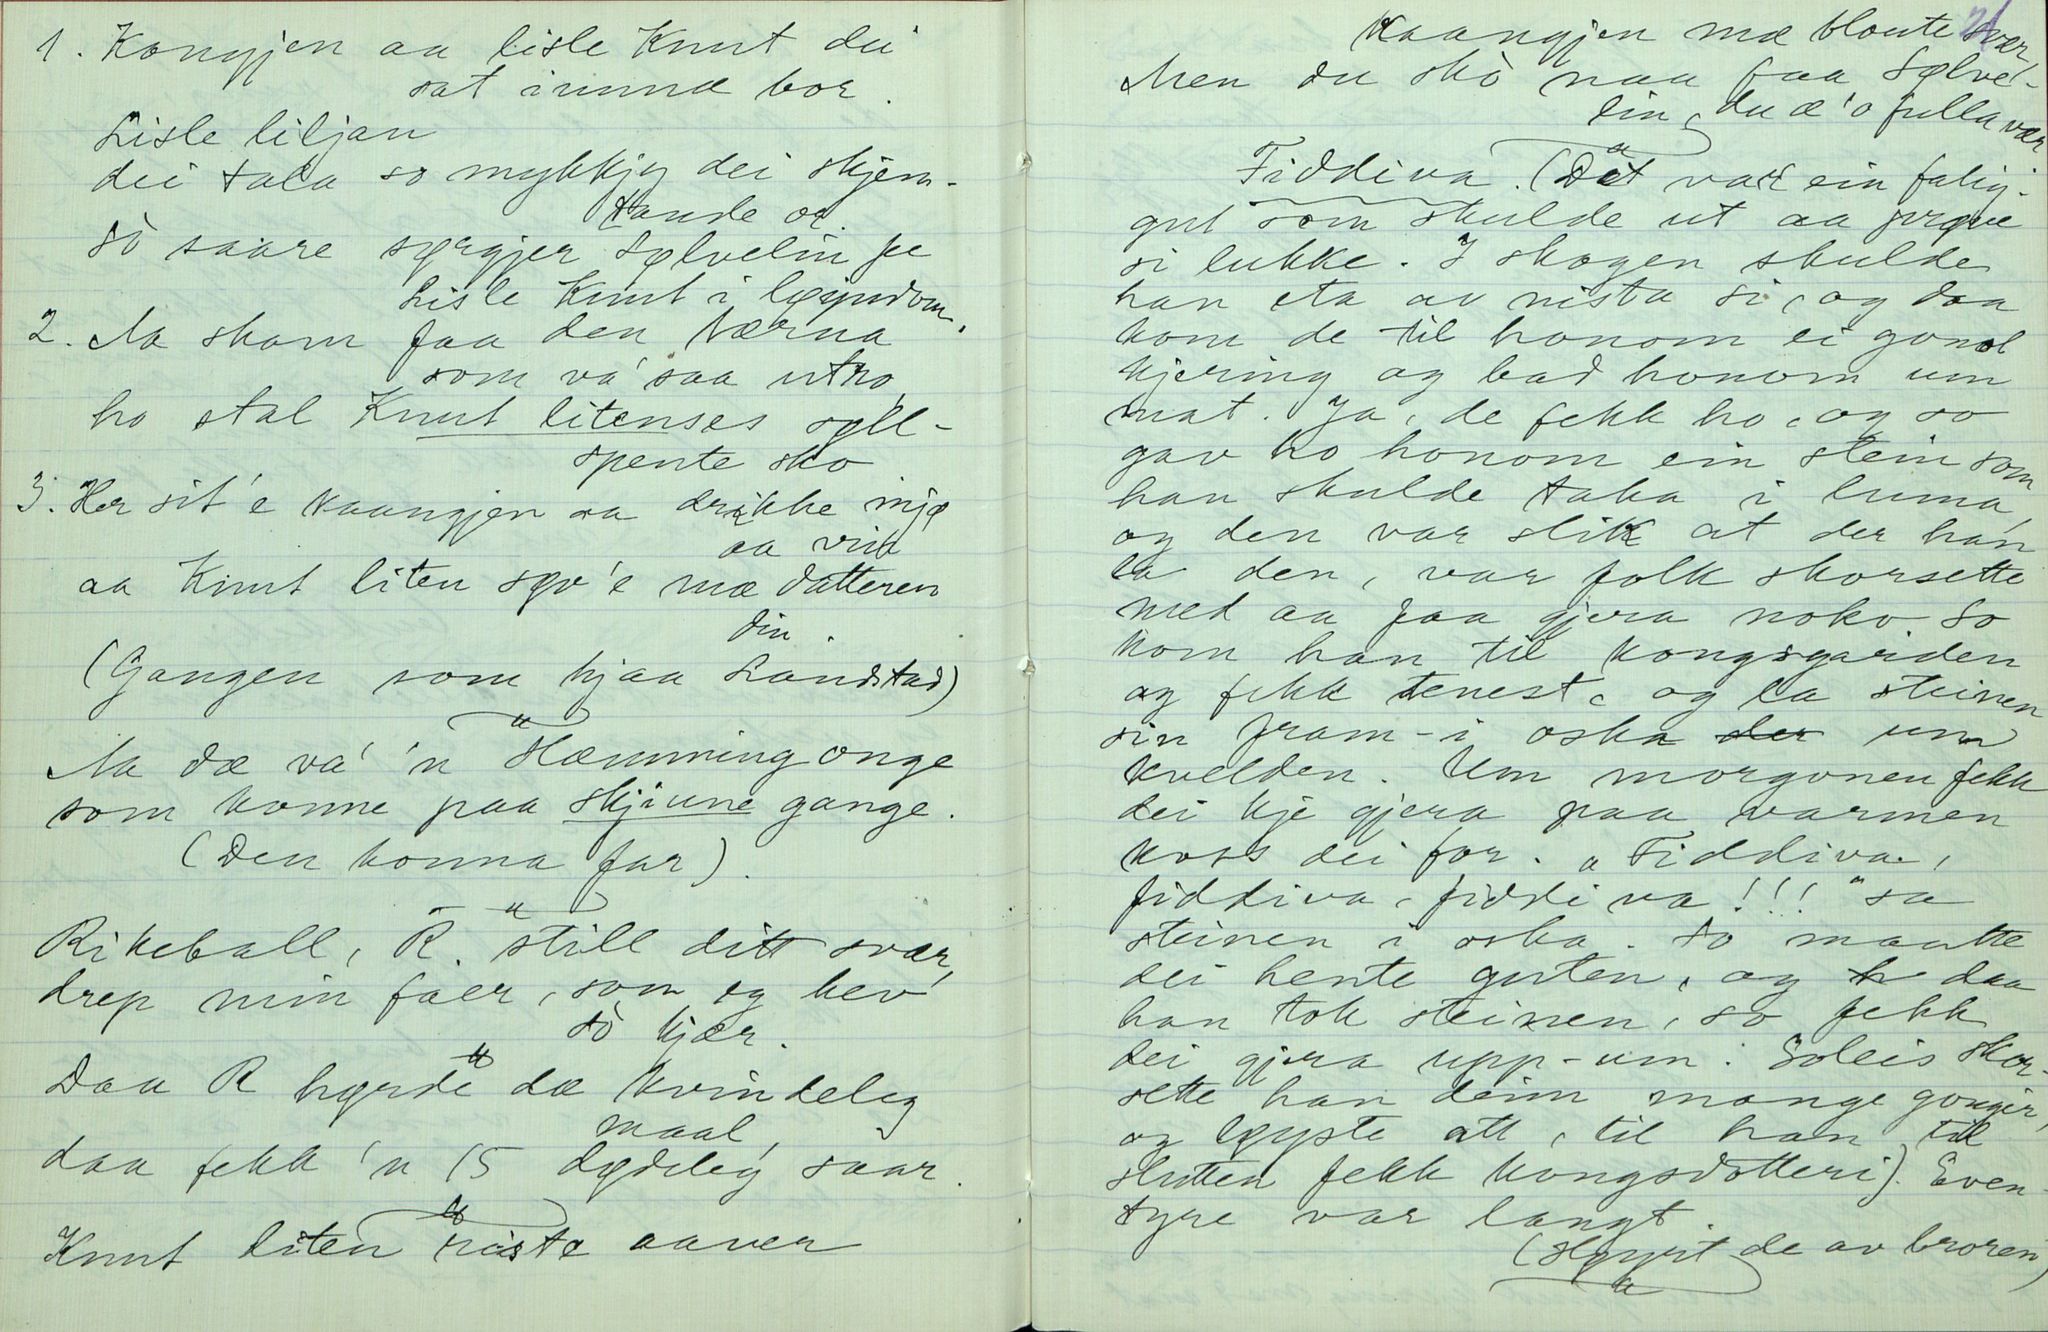 1. Kongjen aa lisle Knut dei
sat innnæ bor.
Lisle liljan
dei tala so mykkjy dei skjem-
tande oc
sò saare sørgjer Sølvelin pe
Lisle Knut i løyndom.
2. Aa skam faa den tærna
som va' saa utro,
ho stal Knut litenses søll-
spente sko
3. Her sit'e kaangjen aa drikke mjø
aa vin
aa Knut liten søv'e mæ datteren
din.
(Gangen som hjaa Landstad)
"
Aa dæ va' 'n Hæmming onge
som konne paa skjiune gange.
(Den konna far).
"
Rikeball, R. still ditt svær,
drep min faer, som eg hev
sò kjær.
Daa R hørde dæ kvindeleg
maal,
daa fekk 'n 15 dødeleg saar.
"
Knut liten riste aaver
21
Kaangjen mæ bloute svær,
Men du skò naa faa Sølve-
lin, du æ 'o fulla vær
"
Fiddiva. (Dæt var ein fatig-
gut som skulde ut aa prøve
si lukke. I skogen skulde
han eta av nista si, og daa
kom de til honom ei gomol
kjering og bad honom um
mat. Ja, de fekk ho, og so
gav ho honom ein stein som
han skulde taka i luma,
og den var slik at der han
la den, var folk skorsette
med aa faa gjera noko So
kom han til kongsgarden
og fekk tenest, og la steinen
sin fram-i oska der um
kvelden. Um morgonen fekk
dei kje gjera paa varmen
koss dei for. "Fiddiva,
fiddiva, fiddiva!!!" sa
steinen i oska. So maatte
dei hente guten, og h daa
han tok steinen, so fekk
dei gjera upp-um. Soleis skor-
sette han deim mange gonger,
og løyste att, til han til
slutten fekk kongsdotteri). Even-
tyre var langt.
(Høyrt de av broren)
"